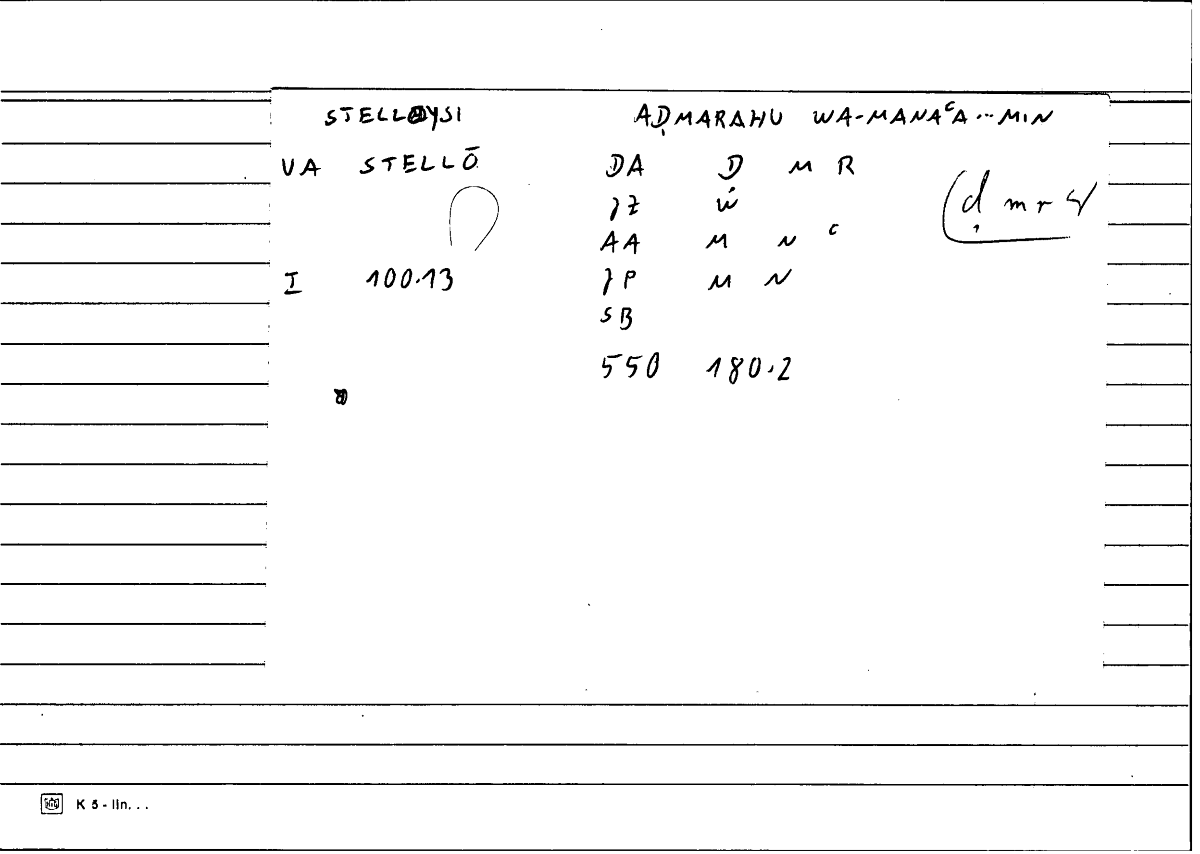 STELLOYSI ADMARAHU WA-MANAᶜA...MIN
VA STELLŌ DA Ḍ M R
ẇ (ḍ mr 4)
AA M N ᶜ
I 100.13 P M N
SB
550 180.2
K 5 - lin. . .